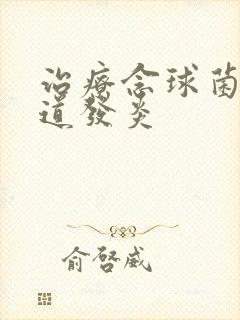 治療念球菌
道發炎
俞啓威